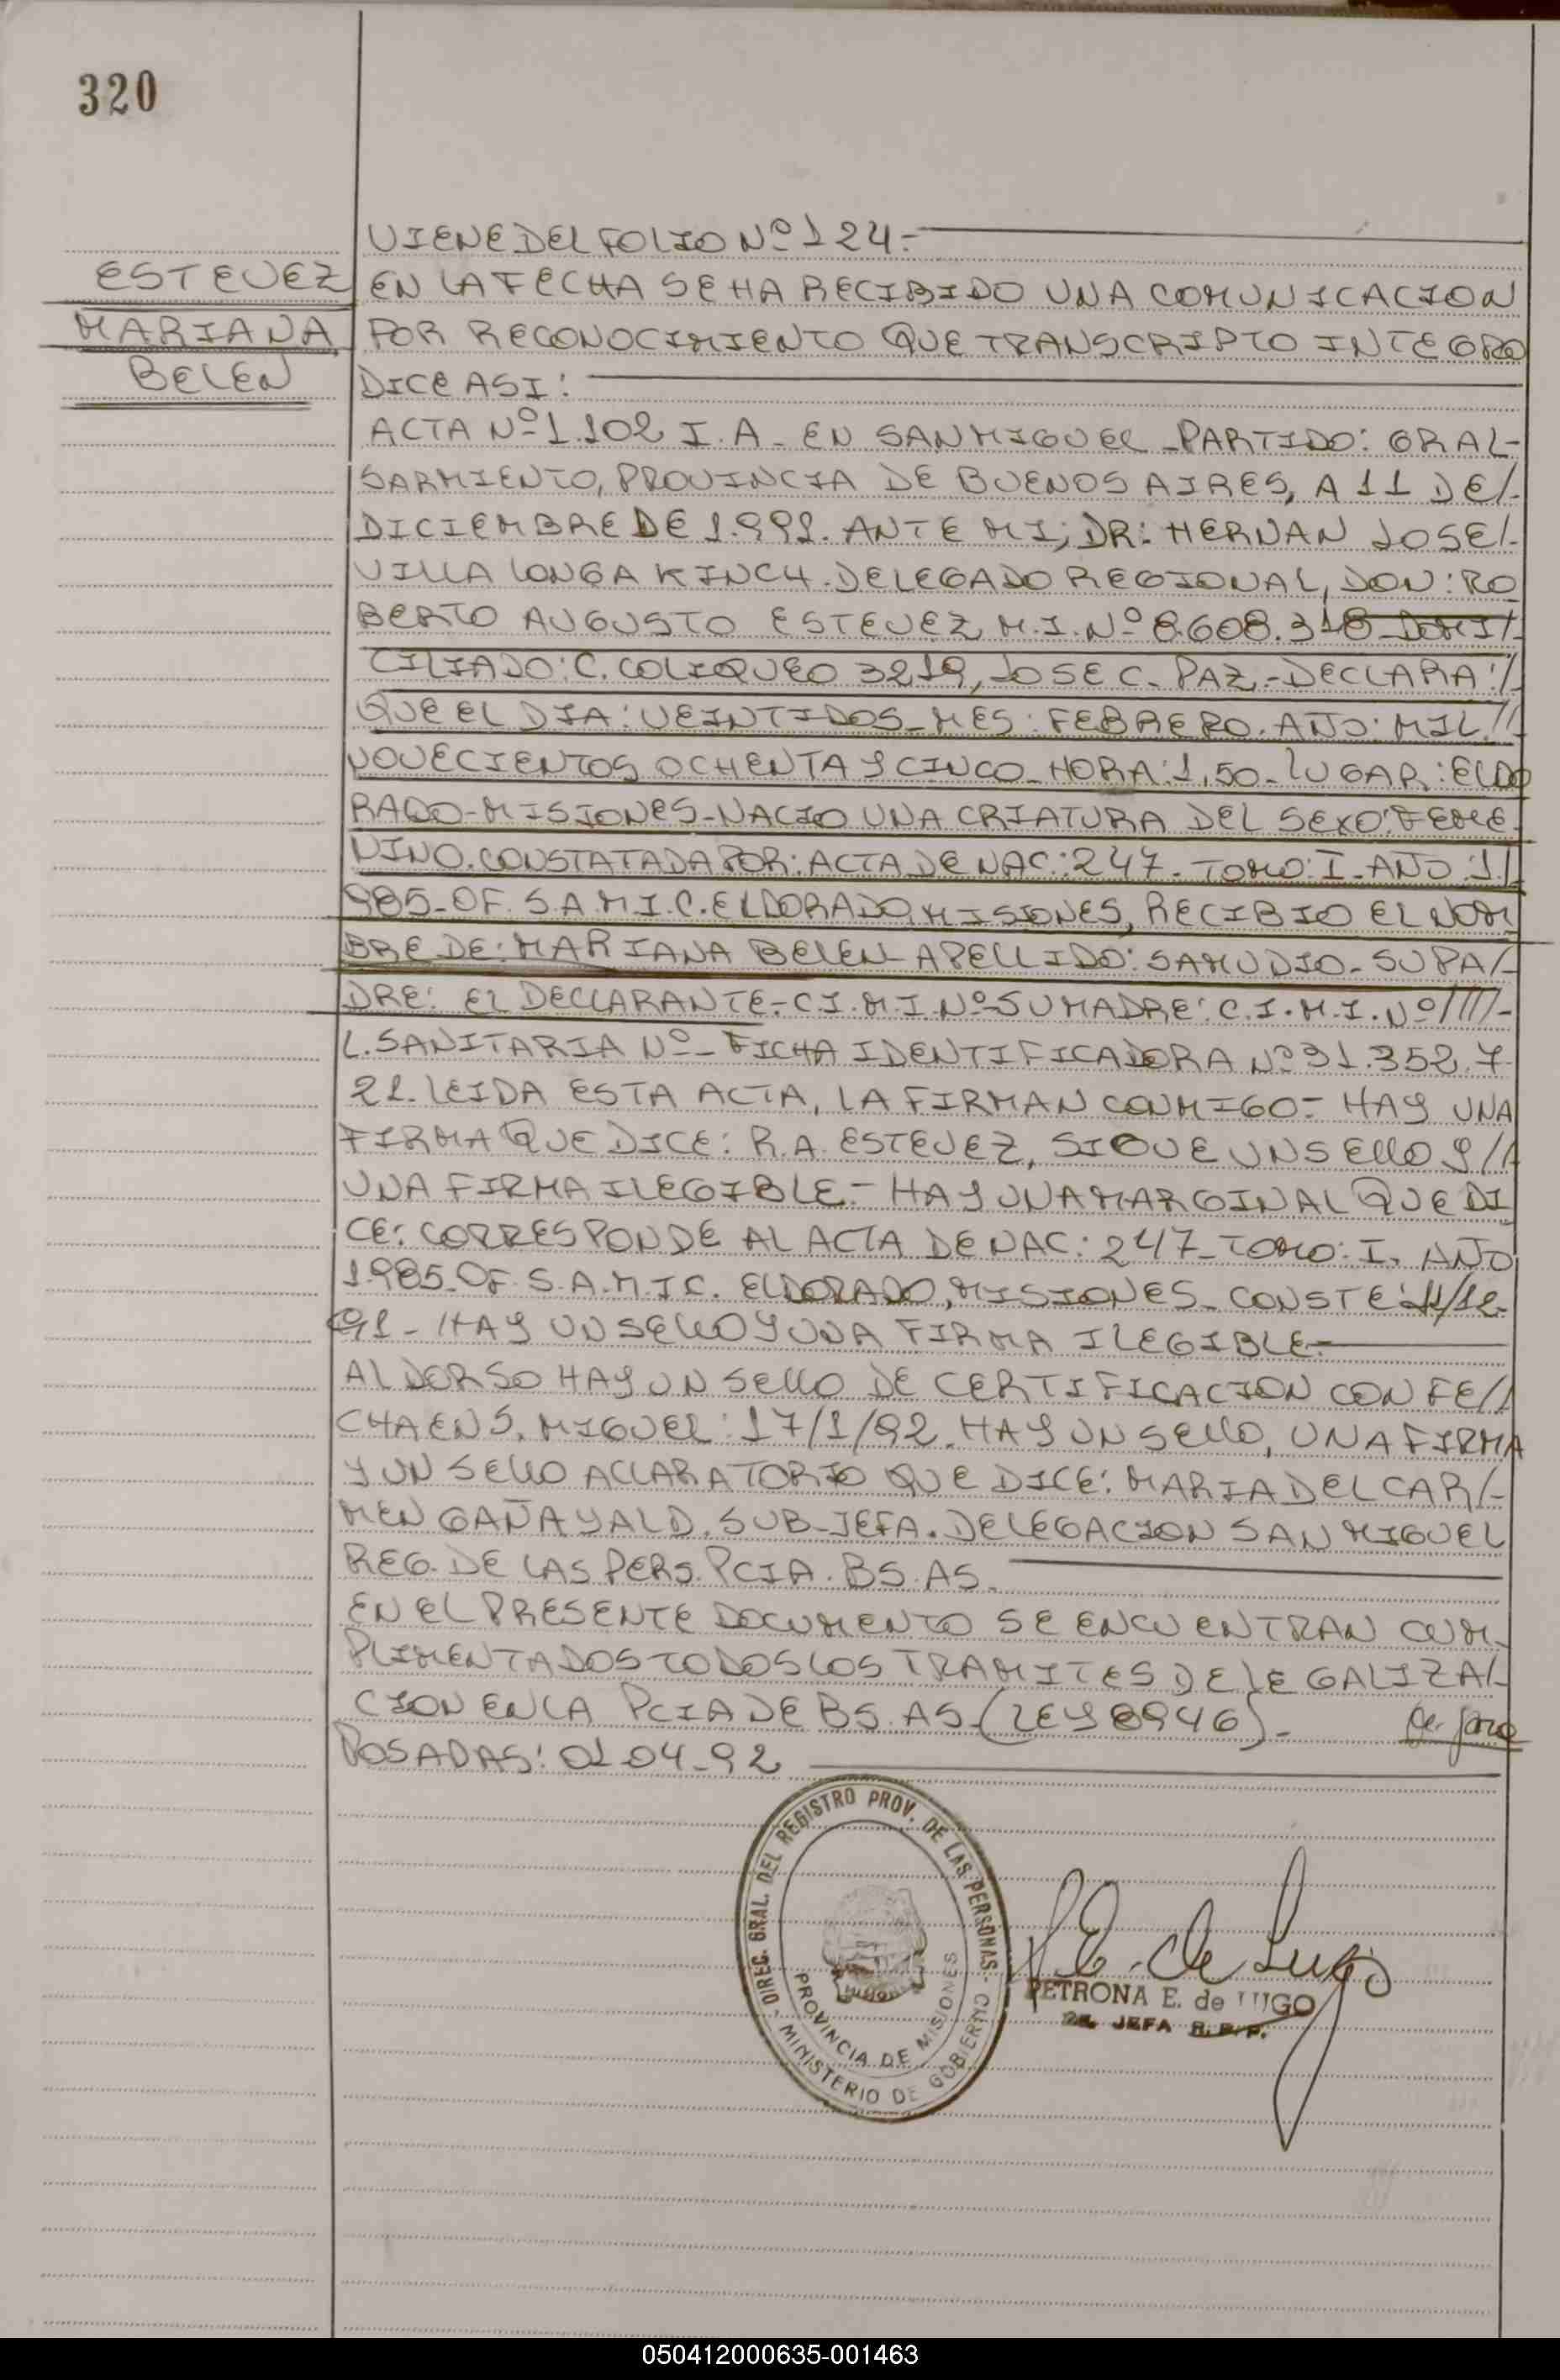 320
VIENE DEL FOLIO Nº 124.-
ESTEVEZ
MARIANA
BELEN
EN LA FECHA SE HA RECIBIDO UNA COMUNICACION
POR RECONOCIMIENTO QUE TRANSCRIPTO INTEGRO
DICE ASI:
ACTA Nº 1.102 I.A - EN SAN MIGUEL - PARTIDO: GRAL-
SARMIENTO, PROVINCIA DE BUENOS AIRES, A 11 DE/-
DICIEMBRE DE 1.991. ANTE MI; DR: HERNAN JOSE/-
VILLA LONGA KINCH. DELEGADO REGIONAL, DON: RO
BERTO AUGUSTO ESTEVEZ, M.I. Nº 8.608.318 - DOMI/-
CILIADO: C. COLIQUEO 3219, JOSE C. PAZ.- DECLARA:/-
QUE EL DIA: VEINTIDOS - MES: FEBRERO. AÑO: MIL.//
NOVECIENTOS OCHENTA Y CINCO - HORA: 1,50 - LUGAR: ELDO
RADO - MISIONES - NACIO UNA CRIATURA DEL SEXO: FEME-
NINO. CONSTATADA POR: ACTA DE NAC: 247 - TOMO: I - AÑO: 1//
985 - OF. S.A.M.I.C. ELDORADO, MISIONES, RECIBIO EL NOM
BRE DE: MARIANA BELEN - APELLIDO: SAMUDIO - SU PA/-
DRE: EL DECLARANTE.- C.I.M.I. Nº - SU MADRE: C.I.M.I. Nº ////-
L. SANITARIA Nº - FICHA IDENTIFICADORA Nº 31.352.7
21. LEIDA ESTA ACTA, LA FIRMAN CONMIGO - HAY UNA
FIRMA QUE DICE: R.A. ESTEVEZ, SIGUE UN SELLO Y //
UNA FIRMA ILEGIBLE - HAY UNA MARGINAL QUE DI
CE: CORRESPONDE AL ACTA DE NAC: 247 - TOMO: I. AÑO
1.985. OF. S.A.M.I.C. ELDORADO, MISIONES - CONSTE: 11/12-
91 - HAY UN SELLO Y UNA FIRMA ILEGIBLE -
AL DORSO HAY UN SELLO DE CERTIFICACION CON FE//
CHA EN S. MIGUEL: 17/1/92. HAY UN SELLO, UNA FIRMA
Y UN SELLO ACLARATORIO QUE DICE: MARIA DEL CAR/-
MEN GAÑAY ALD. SUB-JEFA. DELEGACION SAN MIGUEL
REG. DE LAS PERS. PCIA. BS. AS.
EN EL PRESENTE DOCUMENTO SE ENCUENTRAN CUM-
PLIMENTADOS TODOS LOS TRAMITES DE LEGALIZA/-
CION EN LA PCIA DE BS. AS. (LEY 8946).-
POSADAS: 01-04-92
DIREC. GRAL. DEL REGISTRO PROV. DE LAS PERSONAS
PROVINCIA DE MISIONES
MINISTERIO DE GOBIERNO
P.E. de Lugo
PETRONA E. de LUGO
2a. JEFA R.P.P.
050412000635-001463